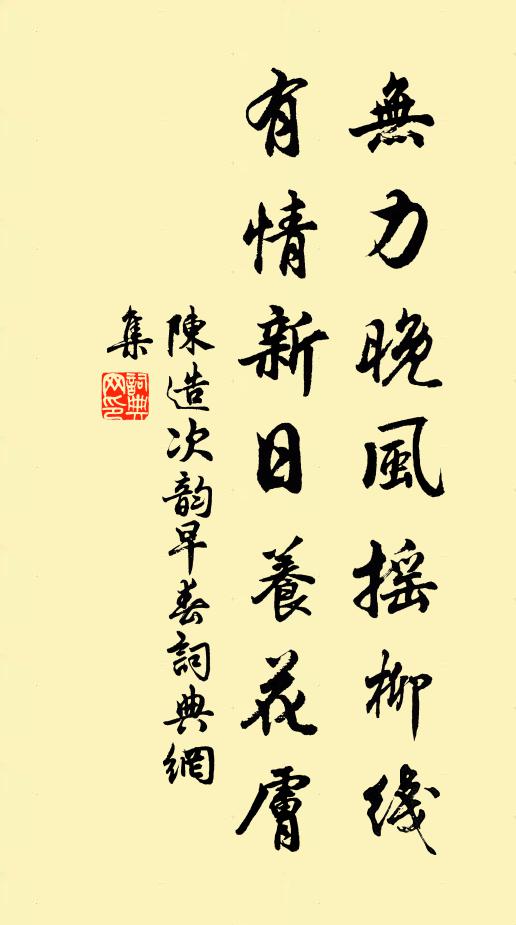 無力晚風摇柳綫
有情新日養花膚
陳造次韵早春詞典網
集
詞典网印